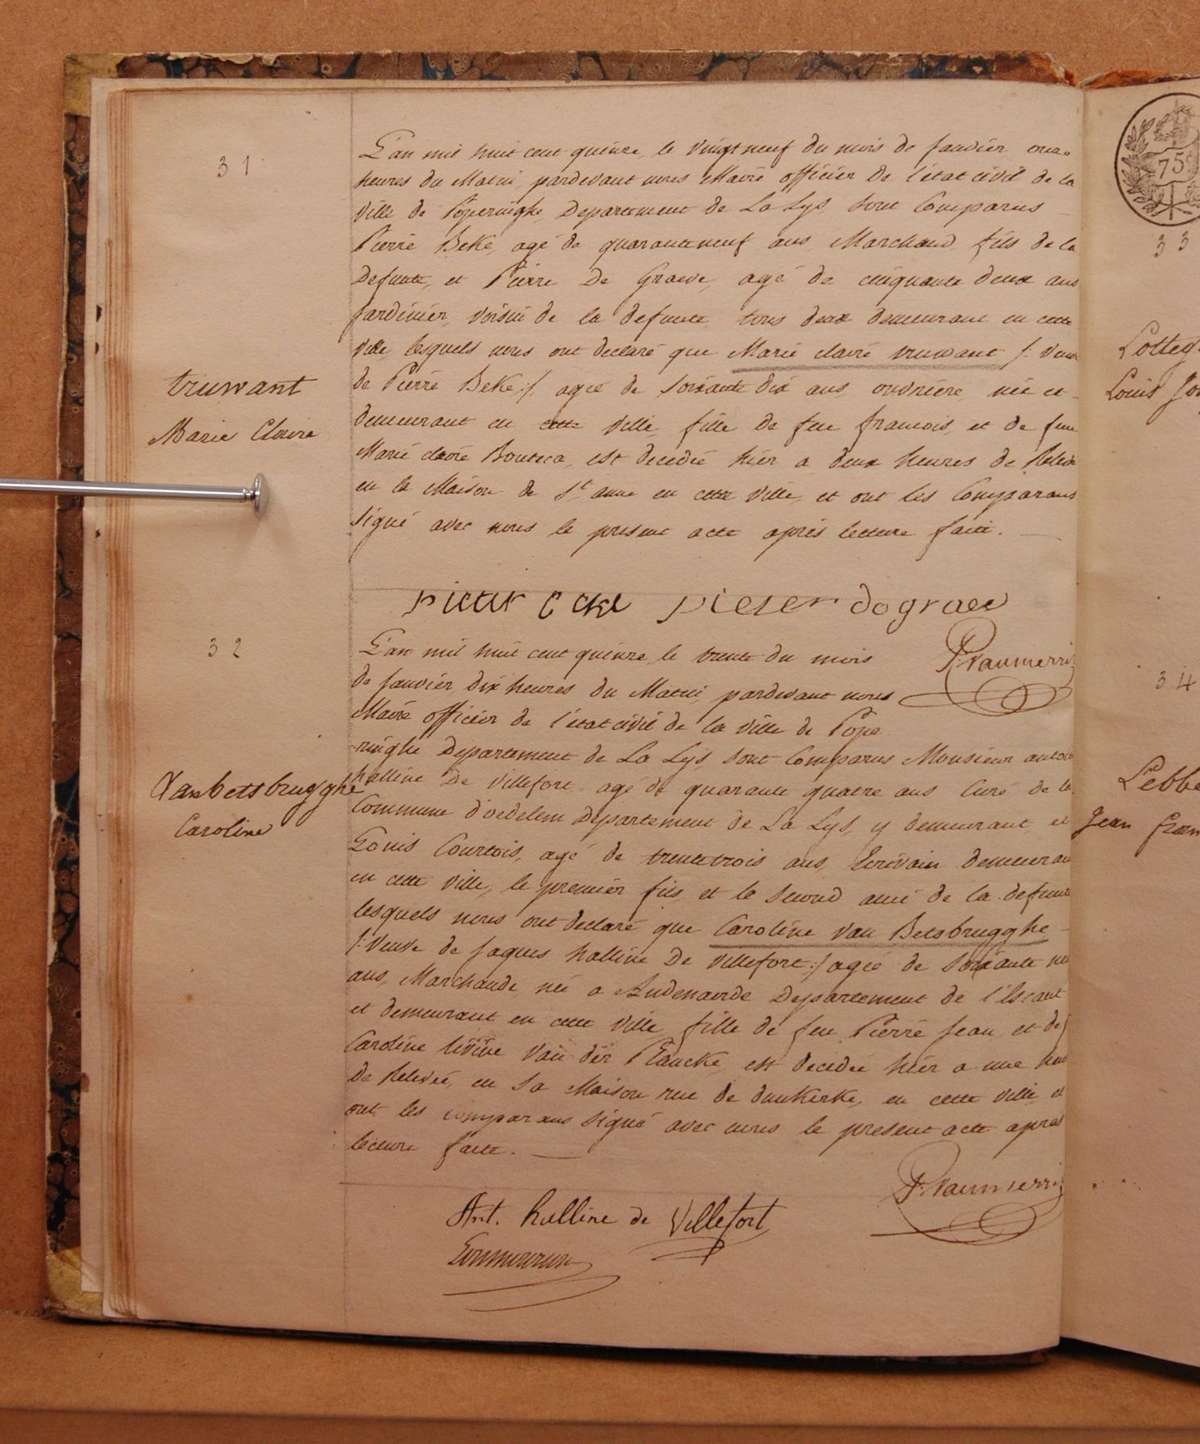 31
L'an mil huit cent quinze, le vingtneuf du mois de janvier onze
heures du Matin, pardevant nous Maire officier de l'état civil de la
ville de Poperinghe Departement de La Lys sont Comparus
Pierre Beke, agé de quaranteneuf ans Marchand fils de la
Defunte, et Pierre De Graeve, agé de cinquante deux ans
jardinier, voisin de la defunte tous deux demeurant en cette
ville lesquels nous ont declaré que Marie claire truwant /: veuve
de Pierre Beke :/ agée de soixante dix ans ouvriere née et
demeurant en cette ville, fille de feu francois, et de feue
Marie claire Bouteca, est decedée hier a deux heures de Relevée
en la Maison de St anne en cette ville, et ont les Comparans
signé avec nous le present acte après lecture faite.
truwant
Marie Claire
pieter beke pieter de graeve
P. Vanmerris
32
L'an mil huit cent quinze, le trente du mois
de janvier dix heures du Matin, pardevant nous
Maire officier de l'état civil de la ville de Pope
ringhe Departement de La Lys sont Comparus Monsieur antoine
halline De villefort agé de quarante quatre ans Curé de la
Commune d'oedelem Departement de La Lys, y demeurant, et
Louis Courtois, agé de trentetrois ans, Ecrivain demeurant
en cette ville, le premier fils et le second ami de la defunte
lesquels nous ont declaré que Caroline van Betsbrugghe
/: veuve de jaques halline De villefort :/ agée de soixante neuf
ans, Marchande née a Audenaerde Departement de l'Escaut
et demeurant en cette ville fille de feu Pierre jean et de
Caroline livine van der Plancke, est decedée hier a une heure
de Relevée, en sa Maison rue de dunkerke, en cette ville, et
ont les comparans signé avec nous le present acte après
lecture faite.
Van betsbrugghe
Caroline
P. Vanmerris
Ant. halline de Villefort
33
Louis
34
Lebbe
Jean
75